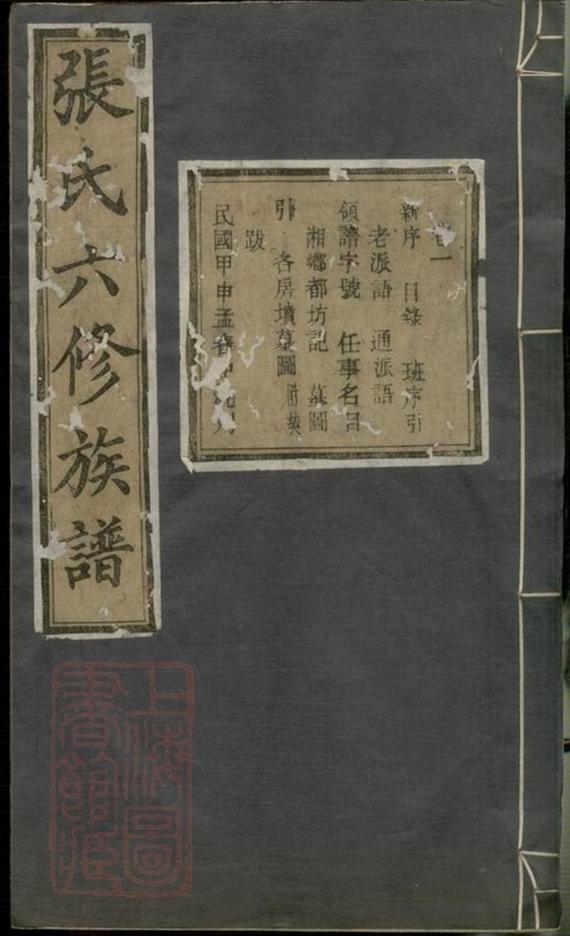 張氏六修族譜
卷一
新序 目錄 班序引
老派語 通派語
領譜字號 任事名目
湘鄉都坊記 墓圖
引 各房墳墓圖 附契
跋
民國甲申孟春
上海圖
書館藏